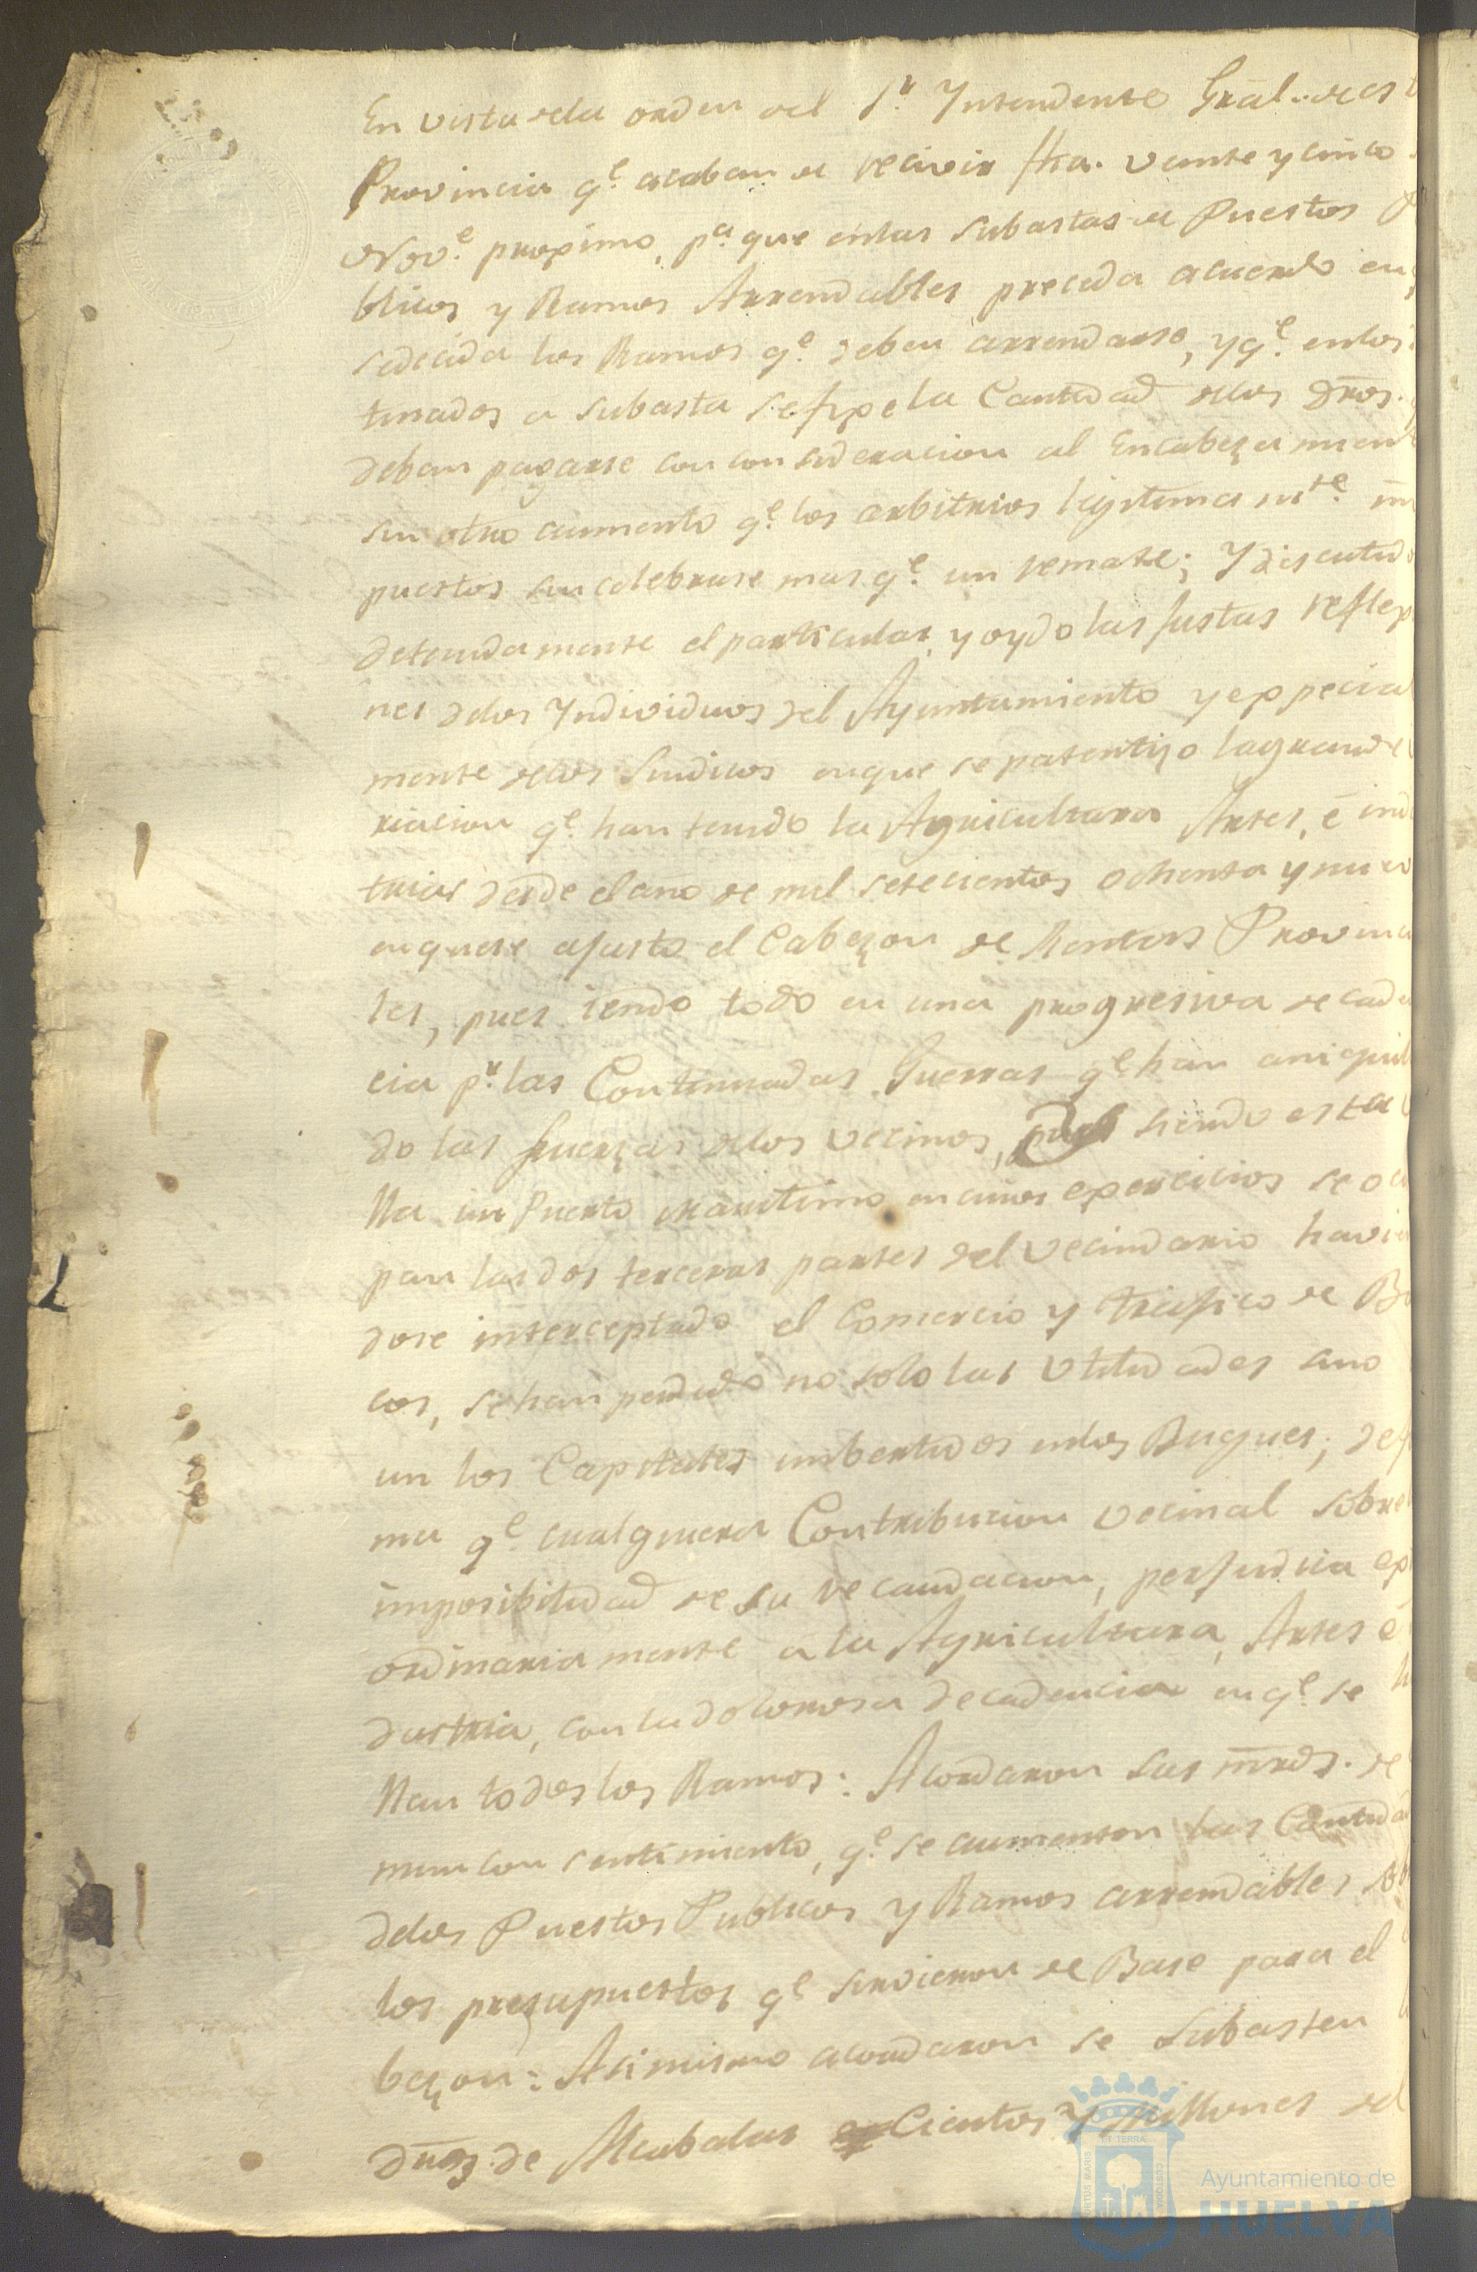 En vista dela orden del Sr. Yntendente Gral. de est
Provincia qe. acaban de recivir fha. veinte y cinco
Nove. proximo, pa. que enlas subastas de Puestos P
blicos y Ramos Arrendables preceda acuerdo en
sedecida los Ramos qe. deben arrendarse, y qe. enlos
tinados a subasta sefixe la Cantidad delos dros.
deban pagarse con consideracion al Encabezamien
sin otro aumento qe. los arbitrios legitimamte. im
puestos sin celebrarse mas qe. un remate; Y discutido
detenidamente el particular, y oydo las justas reflex
nes delos Yndividuos del Ayuntamiento y expecial
mente delos Sindicos enque se patentizo lagrande
riacion qe. han tenido la Agricultura Artes, é ind
trias desde el ano de mil setecientos ochenta y nuev
enquese ajusto el Cabezon de Rentas Provincia
les, pues iendo todo en una progresiva decade
cia pr. las Continuadas Guerras qe. han aniquil
do las fuerzas delos vecinos, pues siendo esta
lla un Puerto Maritimo encuios exercicios se ocu
pan las dos terceras partes del vecindario havien
dose interceptado el Comercio y trafico de Bu
cos, se han perdido no solo las Utilidades sino
un los Capitales imbertidos enlos Buques; def
ma qe. cualquiera Contribucion vecinal sobre
imposibilidad de su recaudacion, perjudica ex
ordinariamente a la Agricultura, Artes é
dustria, con la dolorosa decadencia en qe. se h
llan todos los Ramos: Acordaron sus mrds. de
mun con sentimiento, qe. se aumenten las Cantida
delos Puestos Publicos y Ramos arrendables sob
los presupuestos qe. sirvieron de Base para el
bezon: Asimismo acordaron se subasten
dros. de Alcabalas Cientos y Millones del
VIRTUS MARIS
ET TERRA
CUSTODIA
Ayuntamiento de
HUELVA